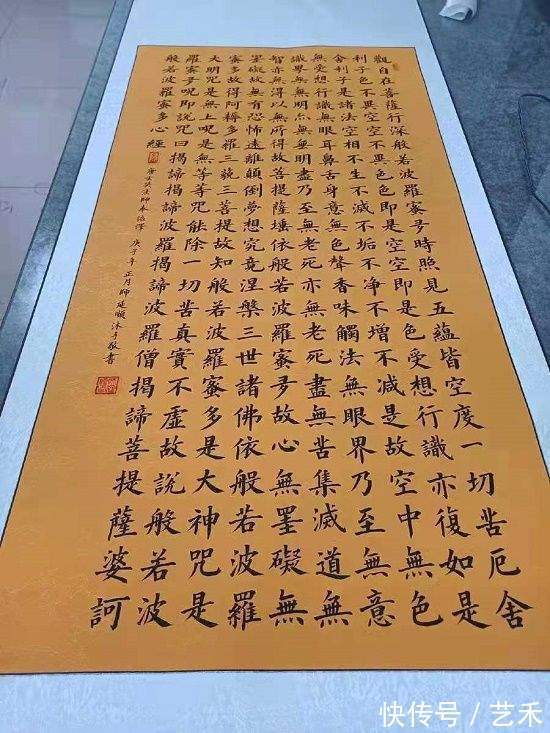 觀自在菩薩行深般若波羅蜜多時照見五蘊皆空度一切苦厄舍
利子色不異空空不異色色即是空空即是色受想行識亦復如是
舍利子是諸法空相不生不滅不垢不淨不增不減是故空中無色
無受想行識無眼耳鼻舌身意無色聲香味觸法無眼界乃至無意
識界無無明亦無無明盡乃至無老死亦無老死盡無苦集滅道無
智亦無得以無所得故菩提薩埵依般若波羅蜜多故心無罣礙無
罣礙故無有恐怖遠離顛倒夢想究竟涅槃三世諸佛依般若波羅
蜜多故得阿耨多羅三藐三菩提故知般若波羅蜜多是大神咒是
大明咒是無上咒是無等等咒能除一切苦真實不虛故說般若波
羅蜜多咒即說咒曰揭諦揭諦波羅揭諦波羅僧揭諦菩提薩婆訶
般若波羅蜜多心經
唐玄奘法師奉詔譯 庚子年正月師延順沐手敬書
快传号 / 艺禾